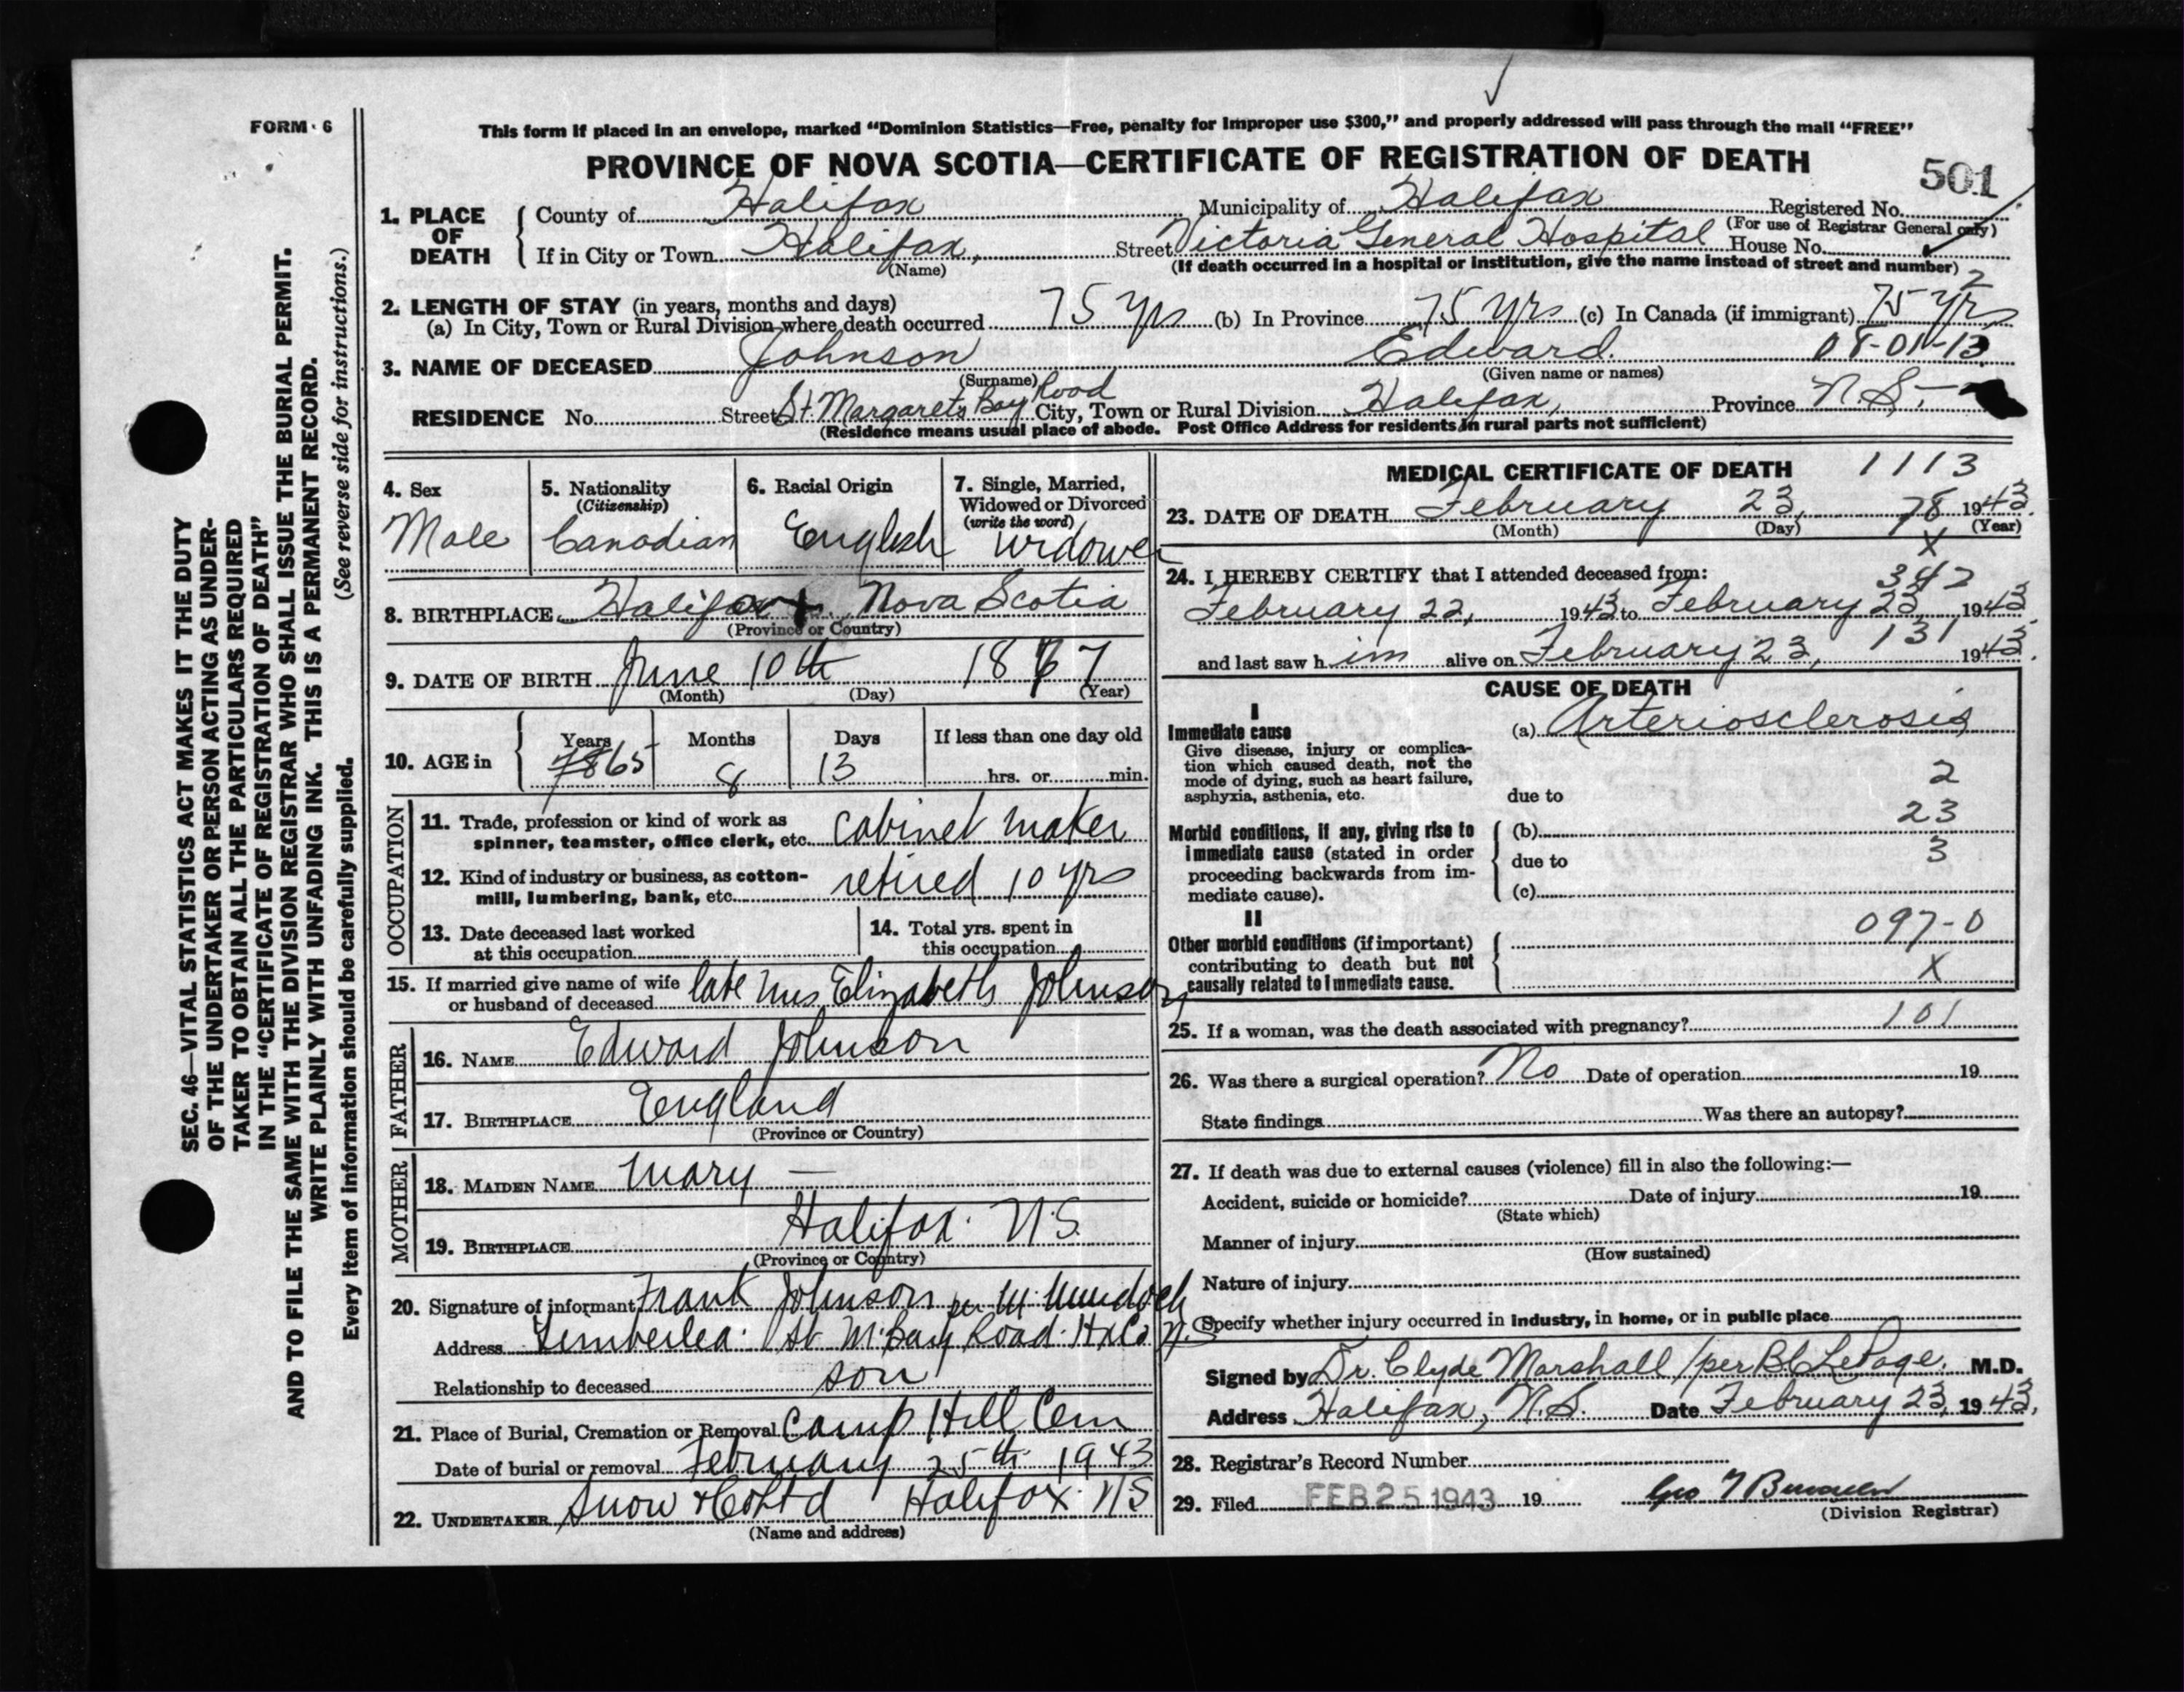 FORM 6
This form if placed in an envelope, marked “Dominion Statistics—Free, penalty for improper use $300,” and properly addressed will pass through the mail “FREE”
PROVINCE OF NOVA SCOTIA—CERTIFICATE OF REGISTRATION OF DEATH
501
SEC. 46—VITAL STATISTICS ACT MAKES IT THE DUTY
OF THE UNDERTAKER OR PERSON ACTING AS UNDER-
TAKER TO OBTAIN ALL THE PARTICULARS REQUIRED
IN THE “CERTIFICATE OF REGISTRATION OF DEATH”
AND TO FILE THE SAME WITH THE DIVISION REGISTRAR WHO SHALL ISSUE THE BURIAL PERMIT.
WRITE PLAINLY WITH UNFADING INK. THIS IS A PERMANENT RECORD.
Every item of information should be carefully supplied. (See reverse side for instructions.)
1. PLACE OF DEATH
County of Halifax Municipality of Halifax Registered No.
(For use of Registrar General only)
If in City or Town Halifax, Street Victoria General Hospital House No.
(Name) (If death occurred in a hospital or institution, give the name instead of street and number)
2
2. LENGTH OF STAY (in years, months and days)
(a) In City, Town or Rural Division where death occurred 75 yrs (b) In Province 75 yrs (c) In Canada (if immigrant) 75 yrs
3. NAME OF DECEASED Johnson Edward. 08-01-13
(Surname) (Given name or names)
RESIDENCE No. Street St. Margarets Bay Road City, Town or Rural Division Halifax, Province N.S.
(Residence means usual place of abode. Post Office Address for residents in rural parts not sufficient)
4. Sex
Male
5. Nationality
(Citizenship)
Canadian
6. Racial Origin
English
7. Single, Married,
Widowed or Divorced
(write the word)
widower
8. BIRTHPLACE Halifax Nova Scotia
(Province or Country)
9. DATE OF BIRTH June 10th 1867
(Month) (Day) (Year)
10. AGE in
Years Months Days If less than one day old
65 8 13 hrs. or min.
OCCUPATION
11. Trade, profession or kind of work as
spinner, teamster, office clerk, etc. cabinet maker
12. Kind of industry or business, as cotton-
mill, lumbering, bank, etc. retired 10 yrs
13. Date deceased last worked
at this occupation
14. Total yrs. spent in
this occupation
15. If married give name of wife
or husband of deceased late Mrs Elizabeth Johnson
FATHER
16. NAME Edward Johnson
17. BIRTHPLACE England
(Province or Country)
MOTHER
18. MAIDEN NAME Mary —
19. BIRTHPLACE Halifax. NS
(Province or Country)
20. Signature of informant Frank Johnson per M. Murdoch
Address Timberlea. St M. Bay Road. Hx Co. N.S
Relationship to deceased son
21. Place of Burial, Cremation or Removal Camp Hill Cem
Date of burial or removal February 25th 1943
22. UNDERTAKER Snow & Co Ltd Halifax NS
(Name and address)
MEDICAL CERTIFICATE OF DEATH 1113
23. DATE OF DEATH February 23, 78 1943.
(Month) (Day) (Year)
X
24. I HEREBY CERTIFY that I attended deceased from:
342
February 22, 1943 to February 23 1943
131
and last saw him alive on February 23, 1943.
CAUSE OF DEATH
I
Immediate cause
Give disease, injury or complica-
tion which caused death, not the
mode of dying, such as heart failure,
asphyxia, asthenia, etc.
(a) Arteriosclerosis
2
due to
23
Morbid conditions, if any, giving rise to
immediate cause (stated in order
proceeding backwards from im-
mediate cause).
(b)
3
due to
(c)
II
097-0
Other morbid conditions (if important)
contributing to death but not
causally related to immediate cause.
X
25. If a woman, was the death associated with pregnancy? 101
26. Was there a surgical operation? No Date of operation 19
State findings Was there an autopsy?
27. If death was due to external causes (violence) fill in also the following:—
Accident, suicide or homicide? Date of injury 19
(State which)
Manner of injury
(How sustained)
Nature of injury
Specify whether injury occurred in industry, in home, or in public place
Signed by Dr. Clyde Marshall /per B.C. LePage. M.D.
Address Halifax, N.S. Date February 23, 1943.
28. Registrar’s Record Number
29. Filed FEB 25 1943 19
(Division Registrar)